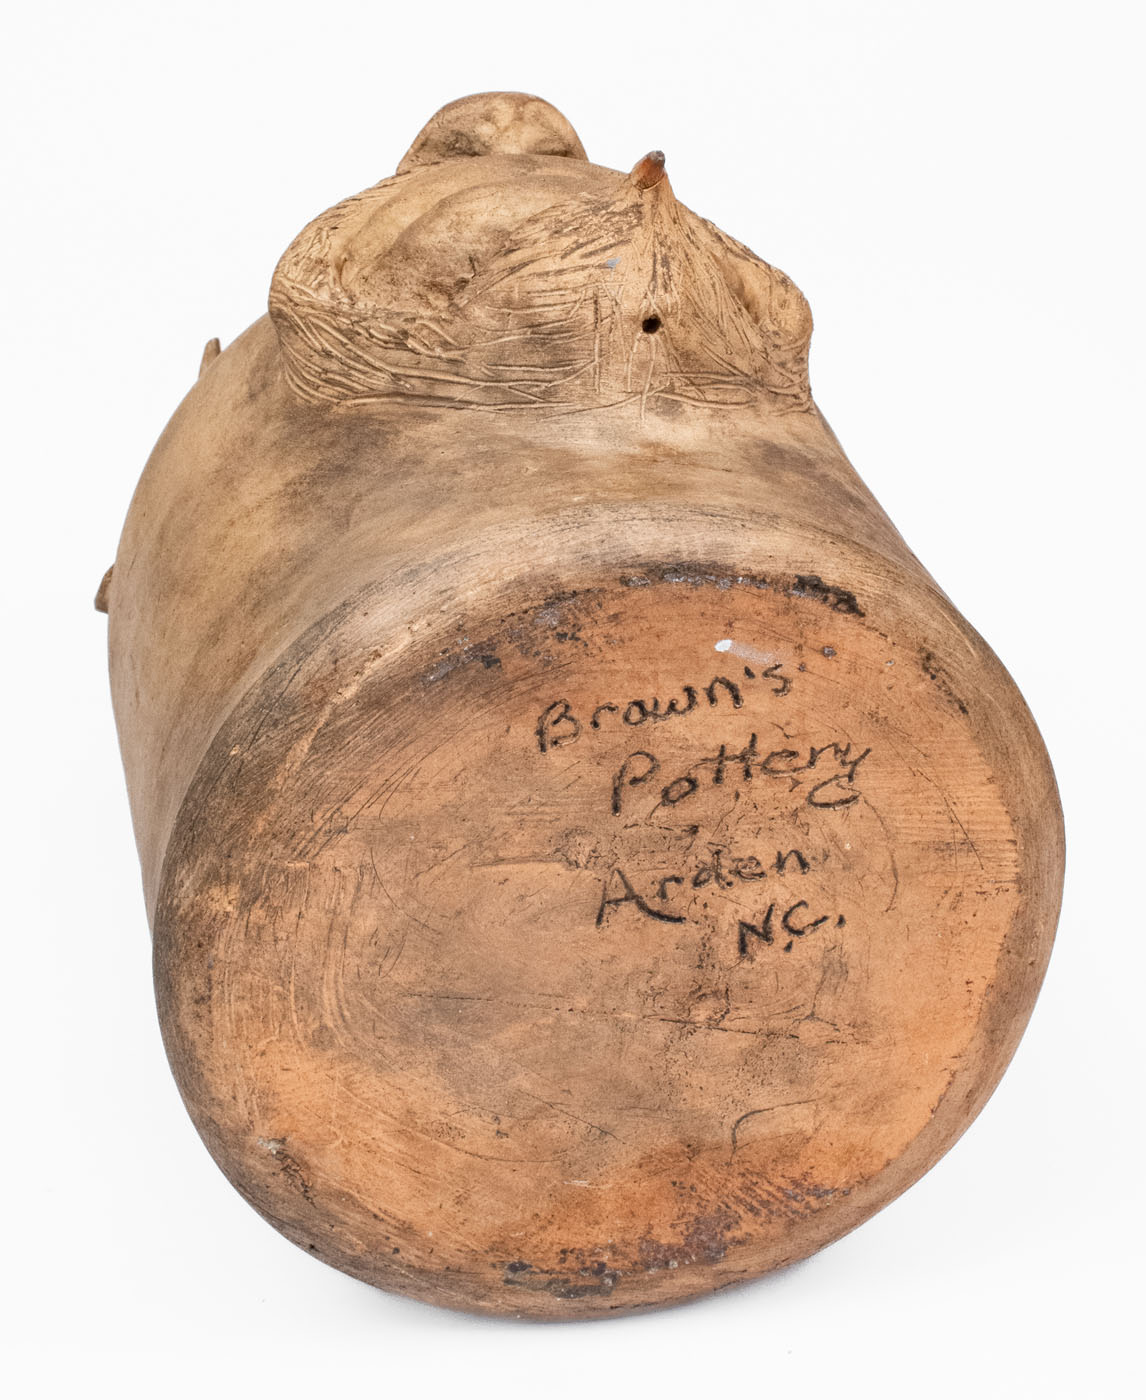 Brown's
Pottery
Arden
N.C.